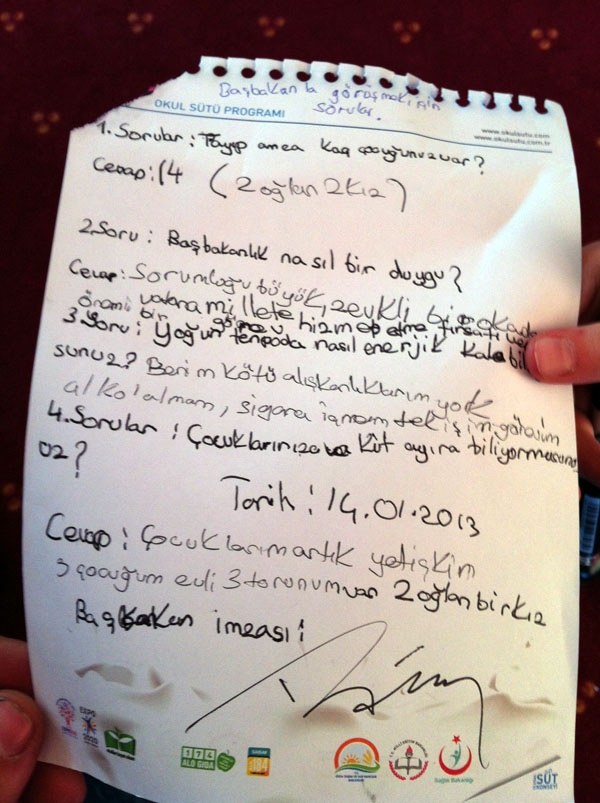 Başbakanla görüşmek için
sorular.
OKUL SÜTÜ PROGRAMI
www.okulsutu.com
www.okulsutu.com.tr
1. Sorular : Tayyip amca kaç çocuğunuz var?
Cevap: 4 (2 oğlan 2 kız)
2.Soru : Başbakanlık nasıl bir duygu?
Cevap: Sorumloğu böyök, zevkli bir okadar
önemli vatana millete hizmet etme fırsatı veren
bir görev
3.Soru : Yoğun tempoda nasıl enerjik kalabil
sunuz? Benim kötü alışkanlıklarım yok
alkol almam, sigara içmem tek işim görevim
4. Sorular : Çocuklarınıza vakit ayıra biliyormusunuz
uz?
Tarih : 14.01.2013
Cevap : Çocuklarım artık yetişkin
3 çocuğum evli 3 torunum var 2 oğlan bir kız
Başbakan imzası :
EXPO
2020
174
ALO GIDA
SABİM
184
T.C. MİLLÎ EĞİTİM BAKANLIĞI
Sağlık Bakanlığı
SÜT